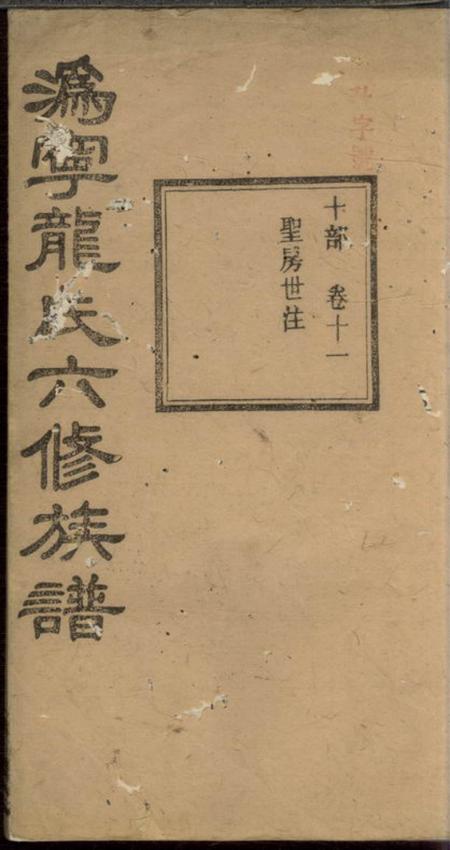 十部 卷十一
聖房世注
溈寧龍氏六修族譜
字號